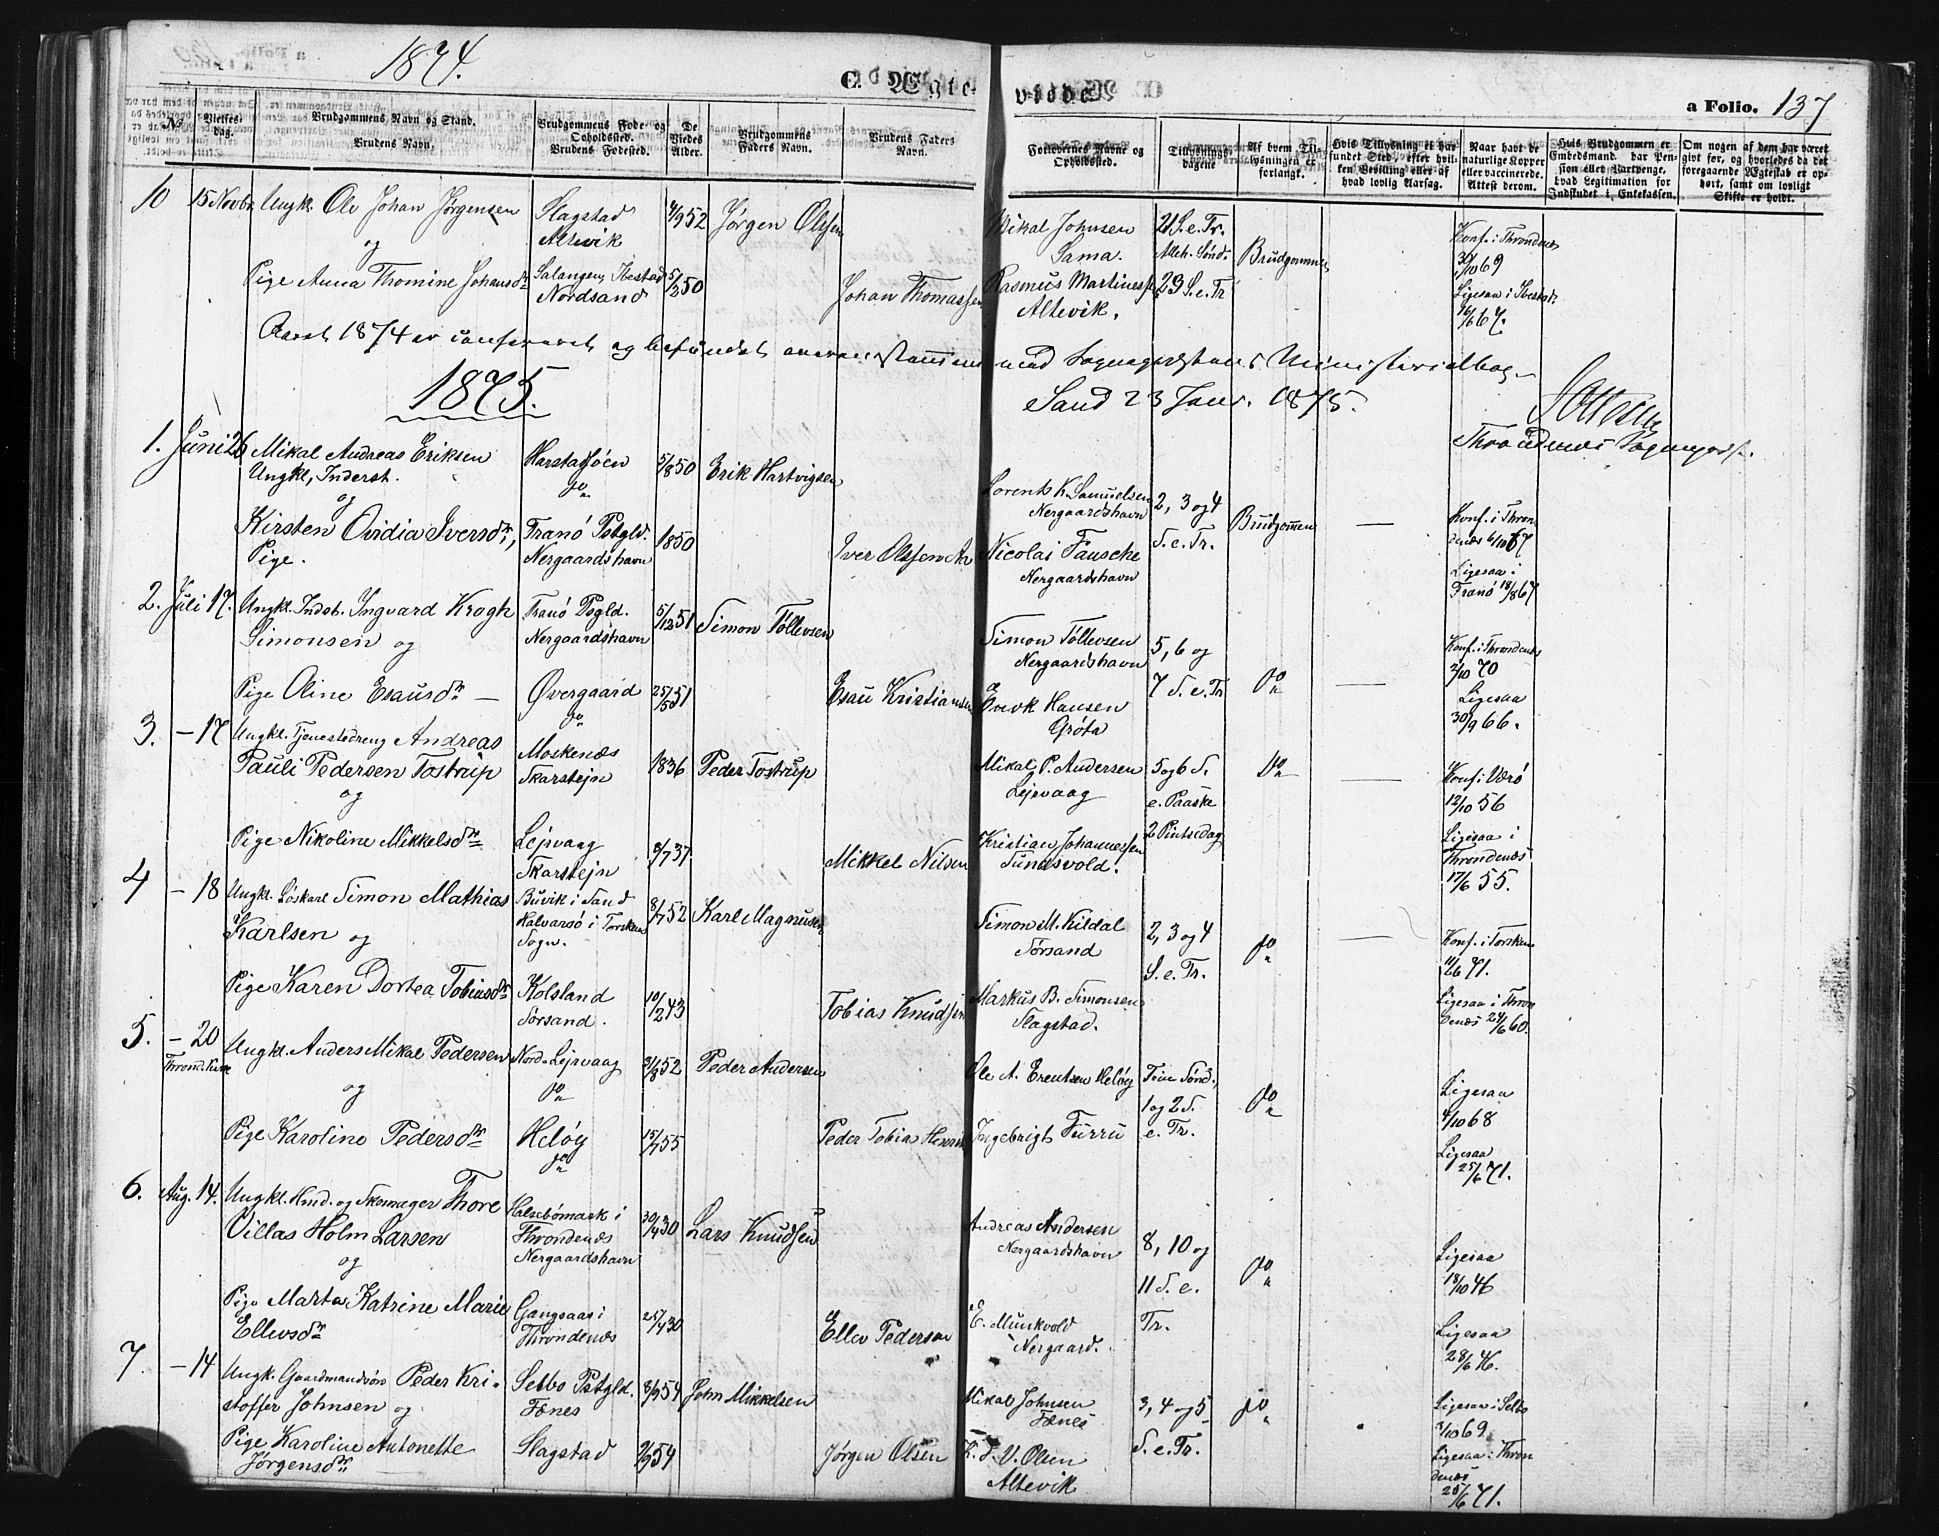 1874.
C. Ægte-
viede.
a Folio. 137
No.
Vielses-
dag.
Brudgommens Navn og Stand.
Brudens Navn.
Brudgommens Føde- og
Opholdssted.
Brudens Fødested.
De
Viedes
Alder.
Brudgommens
Faders Navn.
Brudens Faders
Navn.
Forlovernes Navne og
Opholdssted.
Tillysnings-
dagene
Af hvem Til-
lysningen er
forlangt.
Hvis Tillysning ei har
fundet Sted, efter hvil-
ken Bevilling eller af
hvad lovlig Aarsag.
Naar havt de
naturlige Kopper
eller vaccinerede.
Attest derom.
Hvis Brudgommen er
Embedsmand, har Pen-
sion eller Vartpenge,
hvad Legitimation for
Indskudet i Enkekassen.
Om nogen af dem har været
givt før, og hvorledes da det
foregaaende Ægteskab er op-
hørt, samt om lovligt
Skifte er holdt.
10 15 Novbr. Ungk. Ole Johan Jørgensen
og
Slagstad
Altevik
4/9 52 Jørgen Olsen
Mikal Johnsen
Sama.
21 S. e. Tr.
Alleh. Sønd.
Brudgommen
Konf. i Throndenes
30/10 69
Pige Anna Thomine Johansdr.
Salangen, Ibestad
Nordsand
5/2 50
Johan Thomassen
Rasmus Martiness.
Altevik.
23 S. e. Tr.
Ligesaa i Ibestad
16/6 67.
Aaret 1874 er confereret og befundet overensstemmende med Sognepræstens Ministerialbog.
1875.
Sand 23 Janr. 1875.
Throndenæs Sognepr.
1. Juni 26 Mikal Andreas Eriksen
Ungkl, Inderst.
og
Harstadsjöen
do
5/8 50 Erik Hartvigsen
Lorents K. Samuelsen
Nergaardshavn
2, 3 og 4
S. e. Tr.
Brudgommen
—
Konf. i Thron
denæs 6/10 67
Kirsten Ovidia Iversdr.,
Pige.
Tranö Pstgld.
Nergaardshavn
1850
Iver Olsen
Nicolai Fauscke
Nergaardshavn
Ligesaa i
Tranö 18/8 67
2. Juli 17. Ungkl. Indst. Ingvard Krogh
Simonsen og
Tranö Psgld.
Nergaardshavn
5/12 51 Simon Töllevsen
Simon Töllevsen
Nergaardshavn
5, 6 og
7 S. e. Tr
do
—
Konf. i Throndenæs
2/10 70
Pige Oline Esausdr. —
Övergaard
do
25/5 51
Esau Kristiansen
Enok Hansen
Gröta
Ligesaa
30/9 66.
3. — 17 Ungkl. Tjenestedreng Andreas
Pauli Pedersen Tostrup
og
Moskenæs
Skarstejn
1836 Peder Tostrup
Mikal P. Andersen
Lejrvaag
5 og 6 S.
e. Paaske
2 Pintsedag
Do
—
Konf. i Værö
12/10 56
Pige Nikoline Mikkelsdr.
Lejrvaag
Skarstejn
8/7 37
Mikkel Nilsen
Kristian Johannessen
Tundsvold.
Ligesaa i
Throndenæs
17/6 55.
4 — 18 Ungkl. Löskarl Simon Mathias
Karlsen og
Buvik i Sand
Halvarsö i Torsken
Sogn.
8/7 52 Karl Magnusen
Simon M. Kildal
Sörsand
2, 3 og 4
S. e. Tr.
do
—
Konf. i Torsken
11/6 71.
Pige Karen Dortea Tobiasdr.
Kolsland
Sörsand.
10/2 43
Tobias Knudsen
Markus B. Simonsen
Slagstad.
Ligesaa i Thron
denæs 24/6 60.
5. — 20
Thrond. Kirke
Ungkl. Anders Mikal Pedersen
og
Nord-Lejrvaag
do
2/8 52 Peder Andersen
Ole A. Erentsen Helöy
1 og 2 S.
e. Tr.
do
Ligesaa
4/10 68
Pige Karoline Pedersdr.
Helöy
do
15/7 55
Peder Tobias
Ingebrigt Furru
Ligesaa
25/6 71.
6. Aug. 14. Ungkl. Hmd. og Skomager Thore
Villas Holm Larsen
og
Halsebömark i
Throndenæs
Nergaardshavn
30/4 30 Lars Knudsen
Andreas Andersen
Nergaardshavn
8, 10 og
11 S. e.
Tr.
do
Ligesaa
18/10 46
Pige Marta Katrine Marie
Ellevsdr.
Gangsaas i
Throndenæs
25/4 30
Ellev Pedersen
E. Munkvold
Nergaard.
Ligesaa
28/6 46.
7. — 14 Ungk. Gaardmandsön Peder Kri-
stoffer Johnsen og
Selbo Pstgld.
Fænes
8/9 54 John Mikkelsen
Mikal Johnsen
Fænes
3, 4 og 5
S. e. Tr.
do
Ligesaa i Selbo
3/10 69.
Pige Karoline Antonette
Jörgensdr.
Slagstad
2/9 54
Jörgen Olsen
K. J. V. Olsen
Altevik
Ligesaa i Thron
denæs
25/6 71.